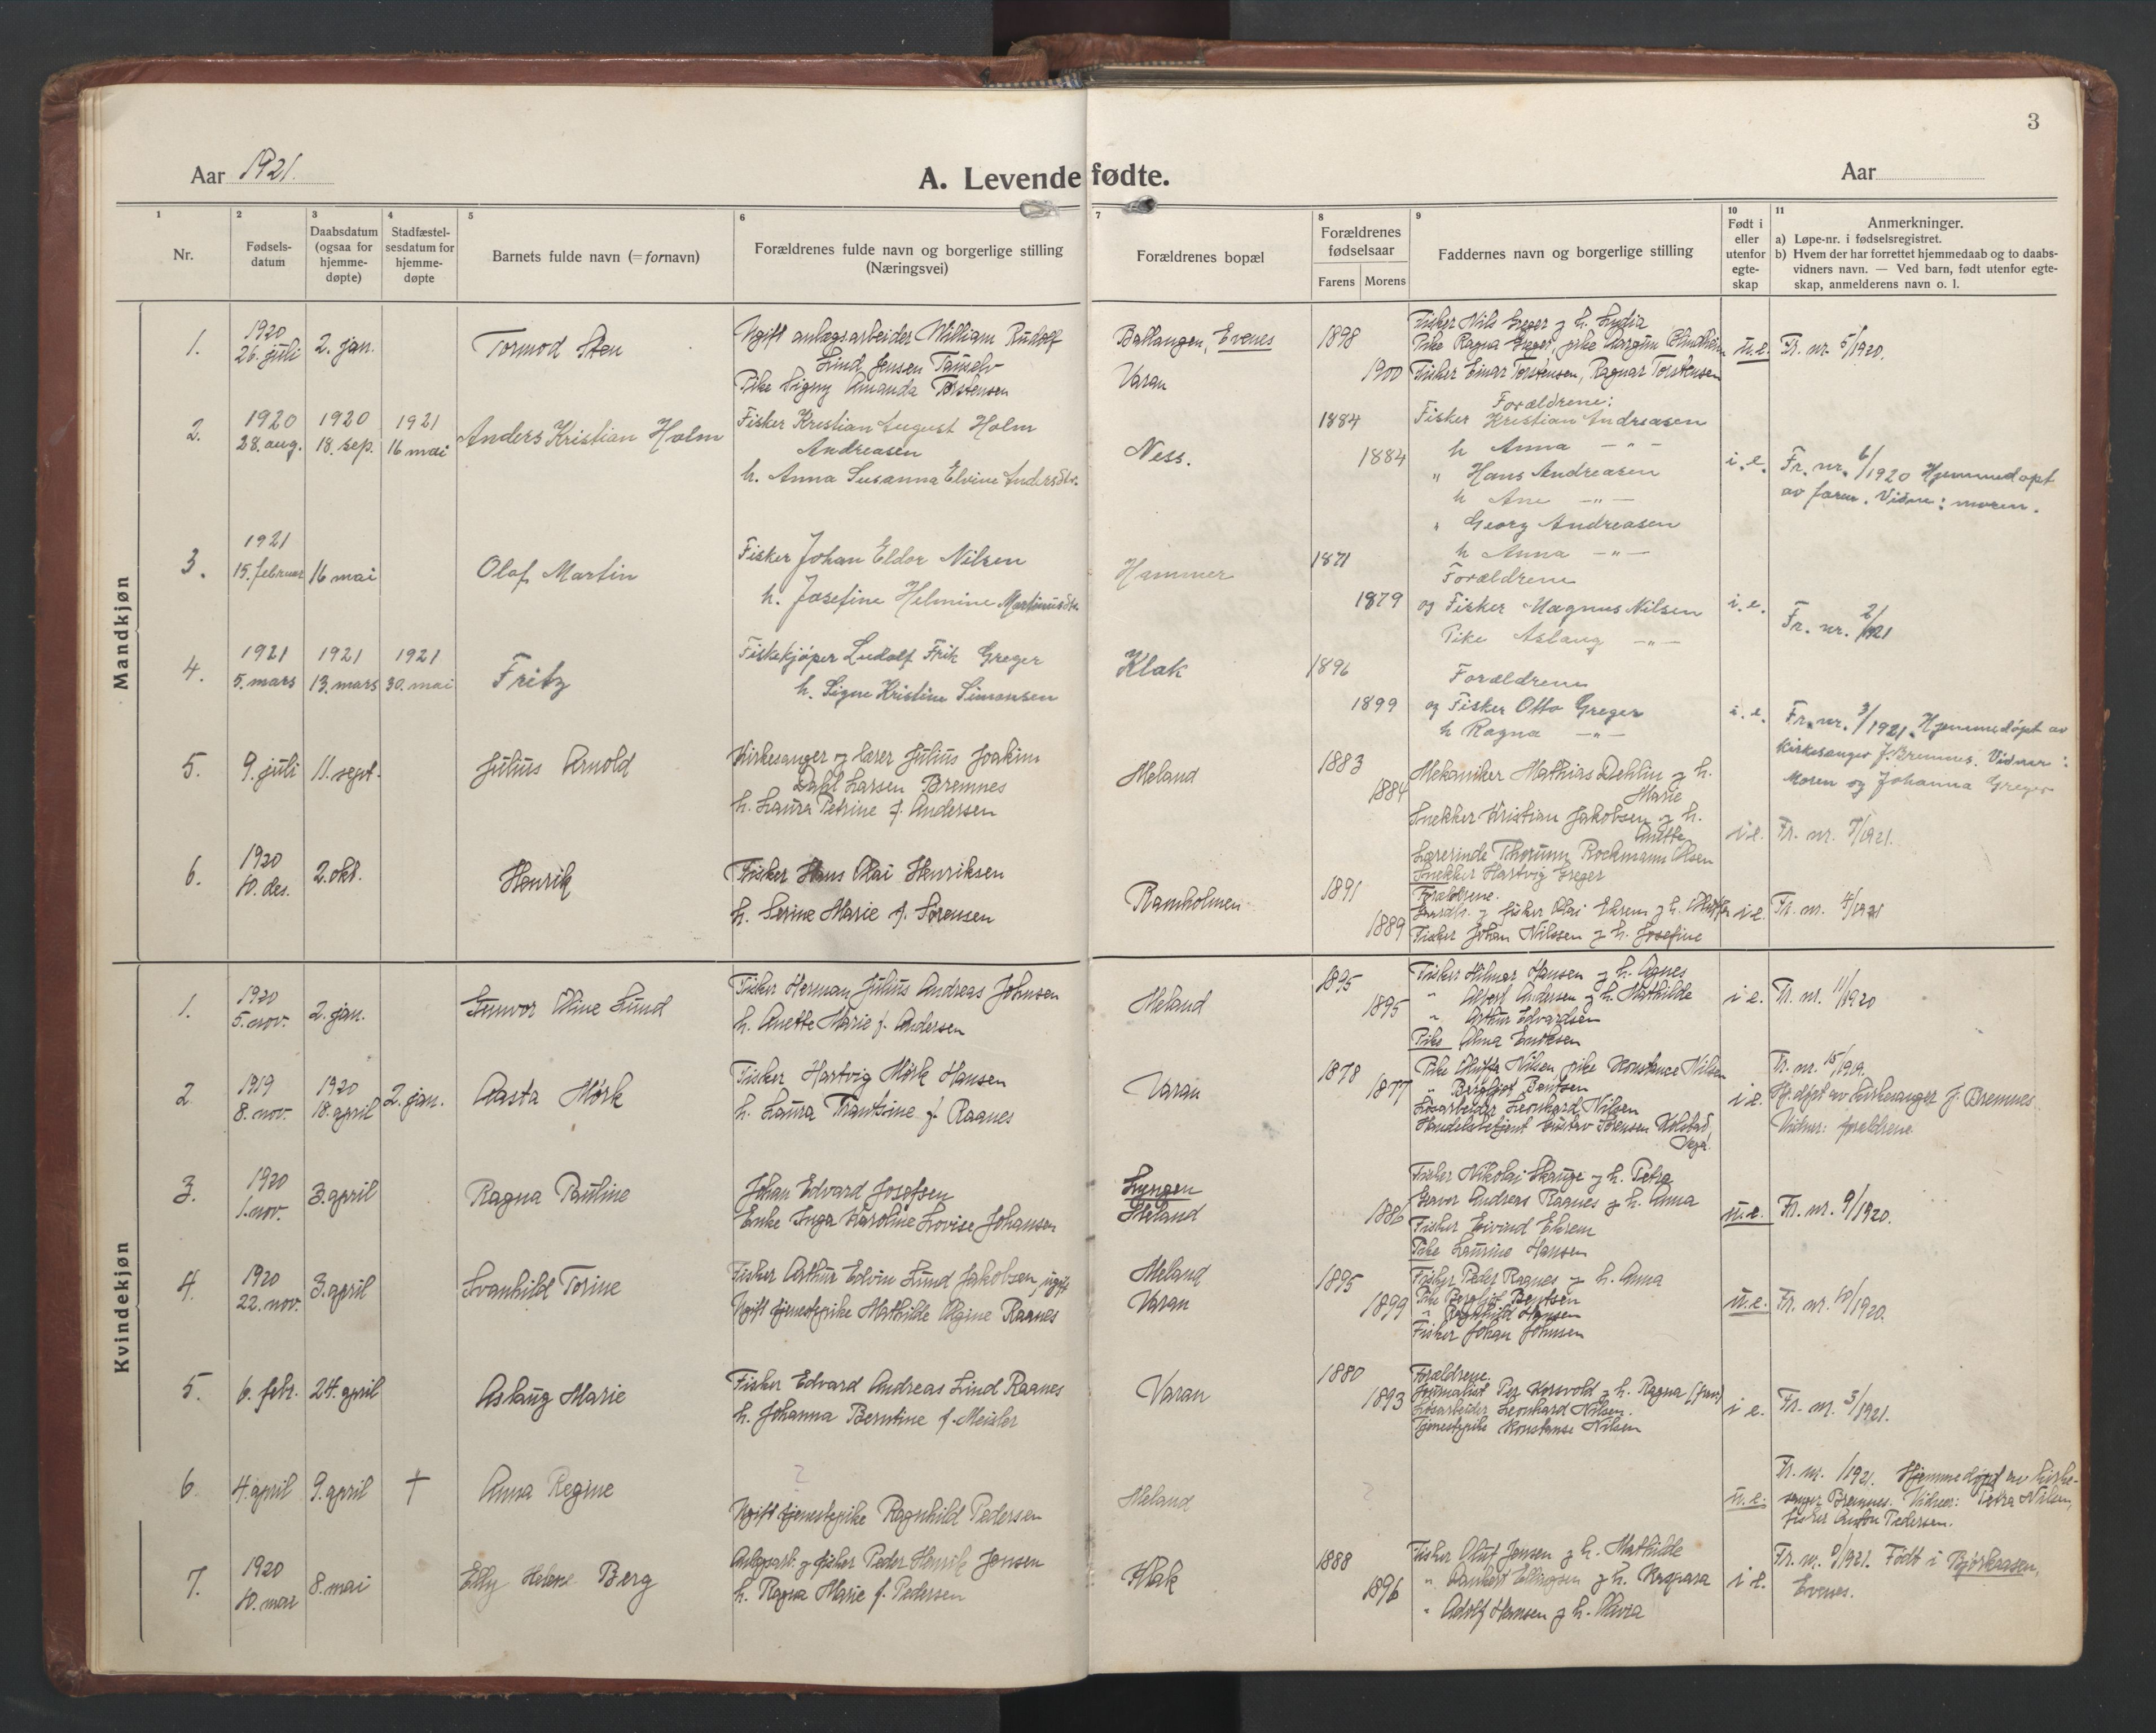 3
Aar 1921. A. Levende fødte. Aar
1 2 3 4 5 6 7 8 9 10 11
Nr. Fødsels-datum Daabsdatum (ogsaa for hjemme-døpte) Stadfæstel-sesdatum for hjemme-døpte Barnets fulde navn (= fornavn) Forældrenes fulde navn og borgerlige stilling (Næringsvei) Forældrenes bopæl Forældrenes fødselsaar Farens Morens Faddernes navn og borgerlige stilling Født i eller utenfor egte-skap Anmerkninger.
a) Løpe-nr. i fødselsregistret.
b) Hvem der har forrettet hjemmedaab og to daabs-
vidners navn. — Ved barn, født utenfor egte-
skap, anmelderens navn o. l.
Mandkjøn
1. 1920 26. juli 2. jan. Tormod Sten
Ugift anlægsarbeider William Rudolf
Lind Jensen Tanselv
Pike Signy Amanda Torstensen
Ballangen, Evenes
Varan
1898
1900
Fisker Nils Greger og h. Lydia
Pike Ragna Greger, pike
Fisker Einar Torstensen, Ragnar Torstensen
u.e. Fr. nr. 5/1920.
2. 1920 28. aug. 1920 18. sep. 1921 16 mai Anders Kristian Holm
Fisker Kristian August Holm
Andreasen
h. Anna Susanna Elvine Andersdtr.
Ness.
1884
1884
Forældrene:
Fisker Kristian Andreasen
h Anna — " —
" Hans Andreasen
h Ane — " —
" Georg Andreasen
h Anna — " —
i.e. Fr. nr. 6/1920 Hjemmedøpt
av faren. Vidne: moren.
3. 1921 15. februar 16 mai Olaf Martin
Fisker Johan Eldor Nilsen
h. Josefine Helmine Martinusdtr.
Hammer
1871
1879
Forældrene
og Fisker Magnus Nilsen
Pike Aslaug — " —
i.e. Fr. nr. 2/1921
4. 1921 5. mars 1921 13. mars 1921 30. mai Fritz
Fiskekjøper Ludolf Frik Greger
h. Signe Kristine Simonsen
Klak
1896
1899
Forældrene
og Fisker Otto Greger
h Ragna — " —
i.e. Fr. nr. 3/1921. Hjemmedøpt av
Kirkesanger J. Bremnes. Vidner:
Moren og Johanna Greger
5. 9. juli 11. sept. Julius Arnold
Kirkesanger og lærer Julius Joakim
Dahl Larsen Bremnes
h. Laura Petrine f. Andersen
Meland
1883
1884
Mekaniker Mathias Dehlin og h.
Marie
Snekker Kristian Jakobsen og h.
Anette
Lærerinde Thorunn Rockmann Olsen
Snekker Hartvig Greger
i e. Fr. nr. 7/1921.
6. 1920 10. des. 2. okt. Henrik
Fisker Hans Olai Henriksen
h. Serine Marie f. Sørensen
Ramholmen
1891
1889
Forældrene.
Gaardbr. og fisker Olai Ekrem og h.
Fisker Johan Nilssen og h. Josefine
i e. Fr. nr. 4/1921
Kvindekjøn
1. 1920 5. nov. 2. jan. Gunvor Oline Lund
Fisker Herman Julius Andreas Johnsen
h. Anette Marie f. Andersen
Meland
1895
1895
Fisker Hilmar Hansen og h. Agnes
" Albert Andersen og h. Mathilde
" Arthur Edvardsen
Pike Alma Eriksen
i e. Fr. nr. 11/1920
2 1919 8. nov. 1920 18. april 2. jan. Aasta Mørk
Fisker Hartvig Mørk Hansen
h. Laura Frantsine f. Raanes
Varan
1878
1877
Pike Oluffa Nilsen pike Konstance Nilsen
" Bergljot Bentsen
Løsarbeider Leonhard Nilsen
Handelsbetjent Gustav Sørensen Kolstad,
Vega.
i e. Fr. nr. 15/1919.
Hj.døpt av kirkesanger J. Bremnes.
Vidner: forældrene
3. 1920 1. nov. 3. april Ragna Pauline
Johan Edvard Josefsen
Enke Inga Karoline Lovise Johansen
Lyngen
Meland
1886
Fisker Nikolai Skauge og h. Petra
Graver Andreas Raanes og h. Anna
Fisker Eivind Ekrem
Pike Laurine Hansen
u.e. Fr. nr. 9/1920.
4. 1920 22. nov. 3. april Svanhild Torine
Fisker Arthur Edvin Lund Jakobsen, ugift
Ugift tjenestepike Mathilde Olgine Raanes
Meland
Varan
1895
1899
Fisker Peder Raanes og h. Anna
Pike Bergljot Bentsen
" Ragnhild Hansen
Fisker Johan Johnsen
u.e. Fr. nr. 10/1920.
5. 6. febr. 24. april Aslaug Marie
Fisker Edvard Andreas Lind Raanes
h. Johanna Berntine f. Meisler
Varan
1880
1893
Forældrene.
Journalist Per Korsvold og h. Ragna
Løsarbeider Leonhard Nilsen.
Tjenestepike Konstanse Nilsen
i e. Fr. nr. 3/1921.
6. 4. april 9. april † Anna Regine
?
Ugift tjenestepike Ragnhild Pedersen
Meland
?
u.e. Fr. nr. 1/1921. Hjemmedøpt av kirke-
sanger Bremnes. Vidner: Petra Nilsen,
fisker Anton Pedersen.
7. 1920 10. mar 8. mai Elly Helene Berg
Anlegsarb. og fisker Peder Henrik Jensen
h. Ragna Marie f. Pedersen
Klak
1888
1896
Fisker Oluf Jensen og h. Mathilde
" Ellingsen og h.
" Adolf Hansen og h. Olivia
i e. Fr. nr. 9/1921. Født i Bjørkaasen,
Evenes.